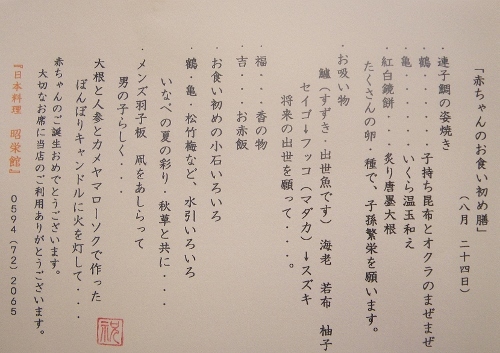 「赤ちゃんのお食い初め膳」
（八月　二十四日）
・連子鯛の姿焼き
・鶴・・・子持ち昆布とオクラのまぜまぜ
・亀・・・・いくら温玉和え
・紅白鏡餅・・・炙り唐墨大根
たくさんの卵・種で、子孫繁栄を願います。
・お吸い物
鱸（すずき・出世魚です）　海老　若布　柚子
セイゴ→フッコ（マダカ）→スズキ
将来の出世を願って・・・・。
・福・・・香の物
・吉・・・お赤飯
・お食い初めの小石いろいろ
・鶴・亀・松竹梅など、水引いろいろ
いなべの夏の彩り・秋草と共に・・・・
・メンズ羽子板　凧をあしらって
男の子らしく・・・
大根と人参とカメヤマローソクで作った
ぼんぼりキャンドルに火を灯して・・・・
赤ちゃんのご誕生おめでとうございます。
大切なお席に当店のご利用ありがとうございます。
『日本料理　昭栄館』　0594（72）2065
祝